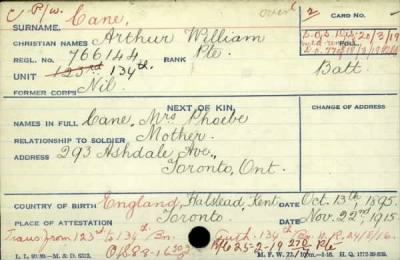 C P/w. Cane, over 2 CARD NO.
SURNAME.
CHRISTIAN NAMES Arthur William
REGL. NO. 766144 RANK Pte.
UNIT 123rd 134th Batt
FORMER CORPS Nil.
NEXT OF KIN. CHANGE OF ADDRESS
NAMES IN FULL Cane, Mrs Phoebe
RELATIONSHIP TO SOLDIER Mother.
ADDRESS 293 Ashdale Ave.,
Toronto, Ont.
COUNTRY OF BIRTH England, Halstead, Kent. DATE Oct. 13th, 1895.
PLACE OF ATTESTATION Toronto. DATE Nov. 22nd, 1915.
Trans. from 123rd to 134th Bn. Auth. 134th Bn. 24/2/16.
25-2-19 Pte
M. F. W. 22.